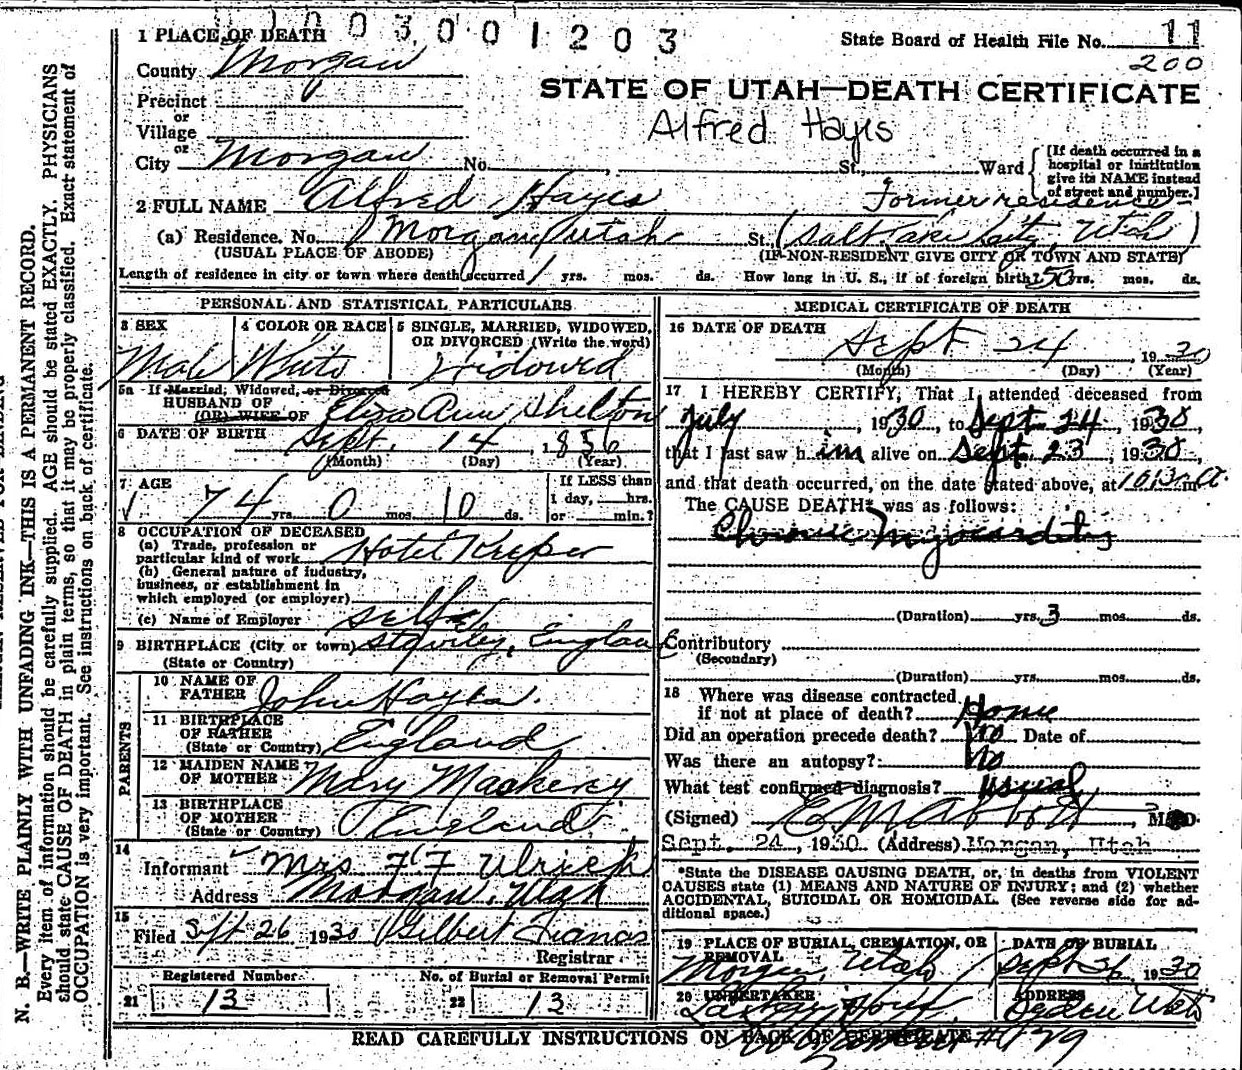 1003001203
1 PLACE OF DEATH
State Board of Health File No. 11
200
County Morgan
STATE OF UTAH—DEATH CERTIFICATE
Precinct
or
Village
Alfred Hayes
or
City Morgan No. St., Ward
[If death occurred in a
hospital or institution
give its NAME instead
of street and number.]
2 FULL NAME Alfred Hayes Former residence
(a) Residence. No. Morgan, Utah St., (Salt Lake City, Utah)
(USUAL PLACE OF ABODE) (IF NON-RESIDENT GIVE CITY OR TOWN AND STATE)
Length of residence in city or town where death occurred 1 yrs. mos. ds. How long in U. S., if of foreign birth? 50 yrs. mos. ds.
PERSONAL AND STATISTICAL PARTICULARS
3 SEX Male
4 COLOR OR RACE White
5 SINGLE, MARRIED, WIDOWED,
OR DIVORCED (Write the word)
Widowed
5a If Married, Widowed, or Divorced
HUSBAND OF
(OR) WIFE OF Eliza Ann Shelton
6 DATE OF BIRTH Sept. 14, 1856
(Month) (Day) (Year)
7 AGE 74 yrs. 0 mos. 10 ds.
If LESS than
1 day, hrs.
or min.?
8 OCCUPATION OF DECEASED
(a) Trade, profession or
particular kind of work Hotel Keeper
(b) General nature of industry,
business, or establishment in
which employed (or employer)
(c) Name of Employer self
9 BIRTHPLACE (City or town)
(State or Country) England
PARENTS
10 NAME OF
FATHER John Hayes.
11 BIRTHPLACE
OF FATHER
(State or Country) England
12 MAIDEN NAME
OF MOTHER Mary
13 BIRTHPLACE
OF MOTHER
(State or Country) England
14
Informant Mrs F. F. Ulrich
Address Morgan, Utah
15
Filed Sept 26 1930 Gilbert Francis
Registrar
Registered Number No. of Burial or Removal Permit
21 13 22 13
MEDICAL CERTIFICATE OF DEATH
16 DATE OF DEATH
Sept 24, 1930
(Month) (Day) (Year)
17 I HEREBY CERTIFY, That I attended deceased from
July, 1930, to Sept 24, 1930,
that I last saw him alive on Sept. 23, 1930,
and that death occurred, on the date stated above, at m
The CAUSE DEATH* was as follows:
Chronic Myocarditis
(Duration) yrs. 3 mos. ds.
Contributory
(Secondary)
(Duration) yrs. mos. ds.
18 Where was disease contracted
if not at place of death? Home
Did an operation precede death? No Date of
Was there an autopsy?: No
What test confirmed diagnosis? usual
(Signed) E M Abbott, M. D.
Sept. 24, 1930 (Address) Morgan, Utah
*State the DISEASE CAUSING DEATH, or, in deaths from VIOLENT
CAUSES state (1) MEANS AND NATURE OF INJURY; and (2) whether
ACCIDENTAL, SUICIDAL OR HOMICIDAL. (See reverse side for ad-
ditional space.)
19 PLACE OF BURIAL, CREMATION, OR
REMOVAL
Morgan, Utah
DATE OF BURIAL
Sept 26 1930
20 UNDERTAKER
ADDRESS
Ogden Utah
READ CAREFULLY INSTRUCTIONS ON BACK OF CERTIFICATE
N. B.—WRITE PLAINLY WITH UNFADING INK—THIS IS A PERMANENT RECORD.
Every item of information should be carefully supplied. AGE should be stated EXACTLY. PHYSICIANS
should state CAUSE OF DEATH in plain terms, so that it may be properly classified. Exact statement of
OCCUPATION is very important. See instructions on back of certificate.